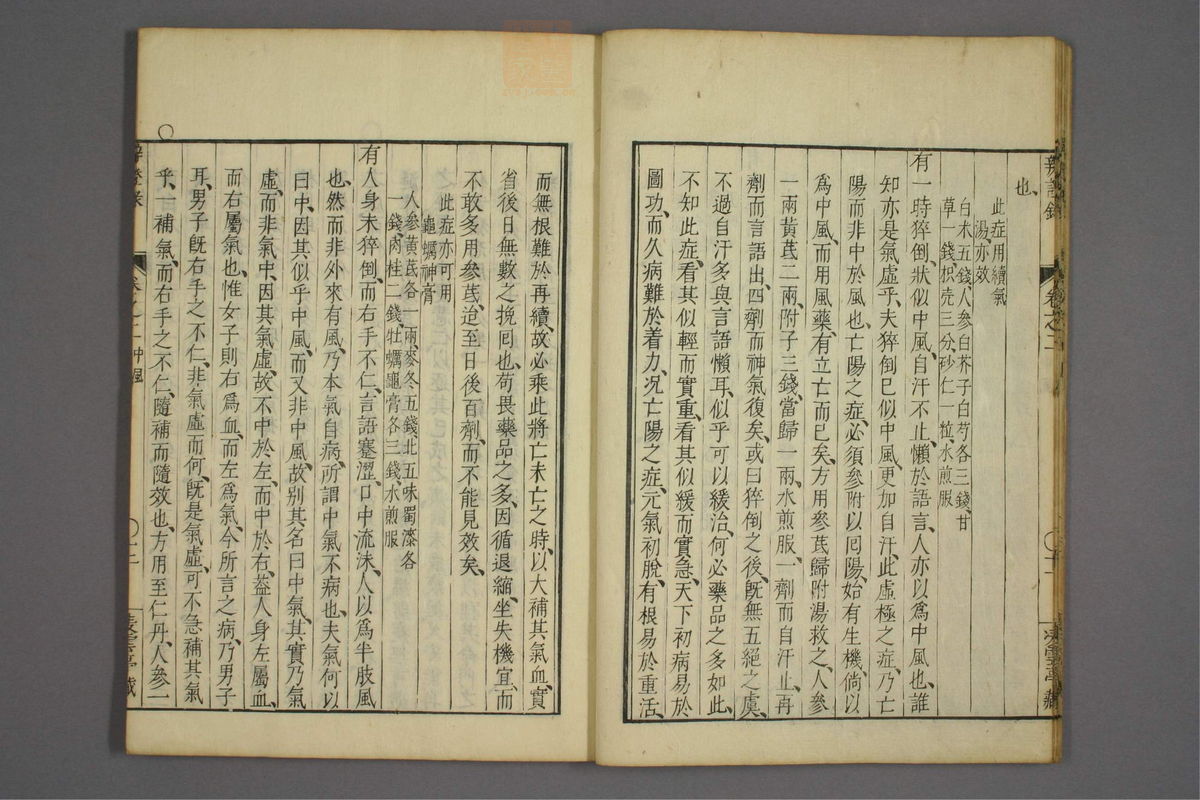 辨證錄 卷之二
也、
此症用續氣
湯、亦效、
白朮五錢、人參白芥子白芍各三錢、甘
草一錢、枳壳三分、砂仁一粒、水煎服
有一時猝倒、狀似中風、自汗不止、懶於語言、人亦以爲中風也、誰
知亦是氣虛乎、夫猝倒巳似中風、更加自汗、此虛極之症、乃亡
陽而非中於風也、亡陽之症、必須參附以囘陽、始有生機、倘以
爲中風、而用風藥、有立亡而巳矣、方用參芪歸附湯救之、人參
一兩黃芪二兩、附子三錢、當歸一兩、水煎服、一劑而自汗止、再
劑而言語出、四劑而神氣復矣、或曰猝倒之後、旣無五絕之虞、
不過自汗多與言語懶耳、似乎可以緩治、何必藥品之多如此、
不知此症、看其似輕而實重、看其似緩而實急、天下初病易於
圖功、而久病難於着力、况亡陽之症、元氣初脫、有根易於重活、
而無根難於再續、故必乘此將亡未亡之時、以大補其氣血、實
省後日無數之挽囘也、苟畏藥品之多、因循退縮、坐失機宜、而
不敢多用參芪、迨至日後百劑、而不能見效矣、
此症亦可用
龜蠣神膏
人參黃芪各一兩、麥冬五錢、北五味蜀漆各
一錢、肉桂二錢、牡蠣龜膏各三錢、水煎服
有人身未猝倒、而右手不仁、言語蹇澀、口中流沫、人以爲半肢風
也、然而非外來有風、乃本氣自病、所謂中氣不病也、夫氣何以
曰中、因其似乎中風、而又非中風、故别其名曰中氣、其實乃氣
虛、而非氣中、因其氣虛、故不中於左、而中於右、葢人身左屬血、
而右屬氣也、惟女子則右爲血、而左爲氣、今所言之病、乃男子
耳、男子旣右手之不仁、非氣虛而何、旣是氣虛、可不急補其氣
乎、一補氣、而右手之不仁、隨補而隨效也、方用至仁丹、人參一
卷之二 中風